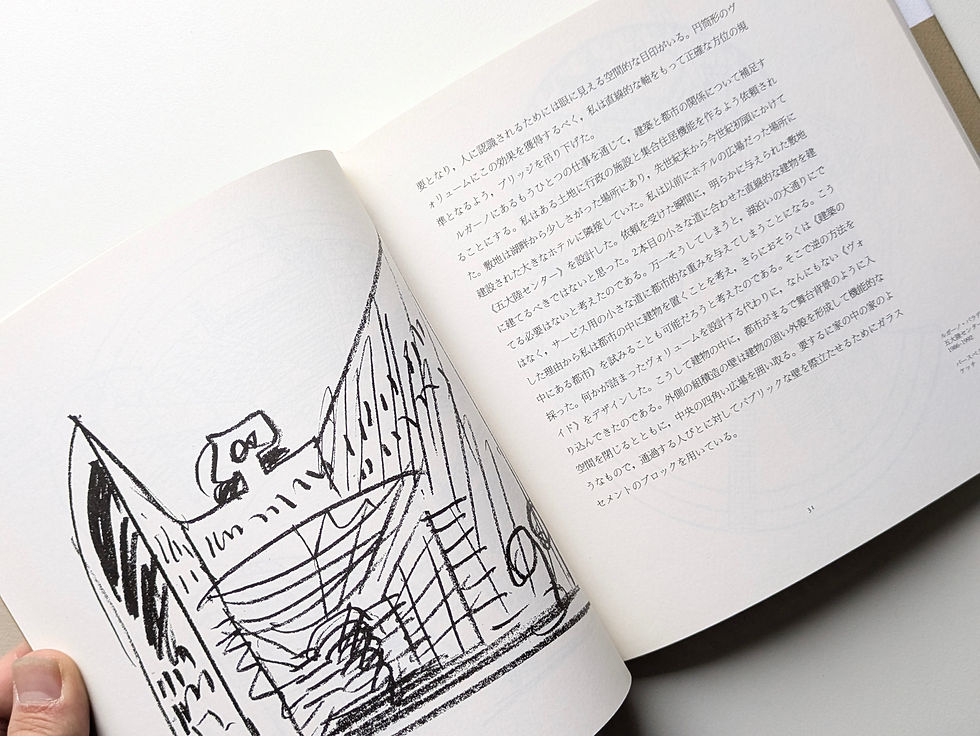 要となり，人に認識されるためには眼に見える空間的な目印がいる。円筒形のヴ
ォリュームにこの効果を獲得するべく，私は直線的な軸をもって正確な方位の規
準となるよう，ブリッジを吊り下げた。
ルガーノにあるもうひとつの仕事を通じて，建築と都市の関係について補足す
ることにする。私はある土地に行政の施設と集合住居機能を作るよう依頼され
た。敷地は湖畔から少しさがった場所にあり，先世紀末から今世紀初頭にかけて
建設された大きなホテルに隣接していた。私は以前にホテルの広場だった場所に
《五大陸センター》を設計した。依頼を受けた瞬間に，明らかに与えられた敷地
に建てるべきではないと思った。2本目の小さな道に合わせた直線的な建物を建
てる必要はないと考えたのである。万一そうしてしまうと，湖沿いの大通りにで
はなく，サービス用の小さな道に都市的な重みを与えてしまうことになる。こう
した理由から私は都市の中に建物を置くことを考え，さらにおそらくは《建築の
中にある都市》を試みることも可能だろうと考えたのである。そこで逆の方法を
採った。何かが詰まったヴォリュームを設計する代わりに，なんにもない《ヴォ
イド》をデザインした。こうして建物の中に，都市がまるで舞台背景のように入
り込んできたのである。外側の組積造の壁は建物の固い外殻を形成して機能的な
空間を閉じるとともに，中央の四角い広場を囲い取る。要するに家の中の家のよ
うなもので，通過する人びとに対してパブリックな壁を際立たせるためにガラス
セメントのブロックを用いている。
31
ルガーノ・パラデ
五大陸セ
1986-1992